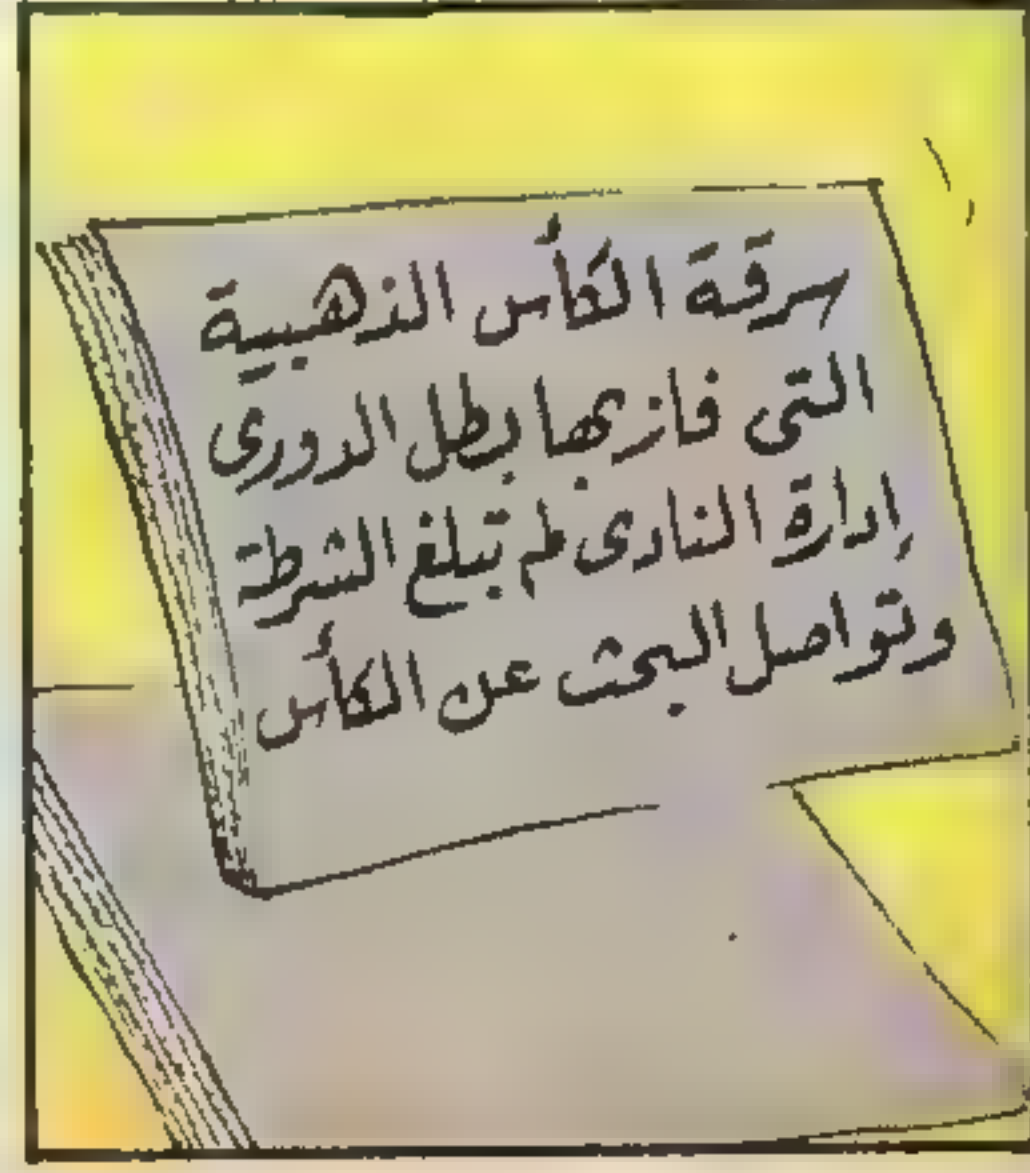 سرقة الكأس الذهبية
التى فاز بها بطل الدورى
إدارة النادى لم تبلغ الشرطة
وتواصل البحث عن الكأس